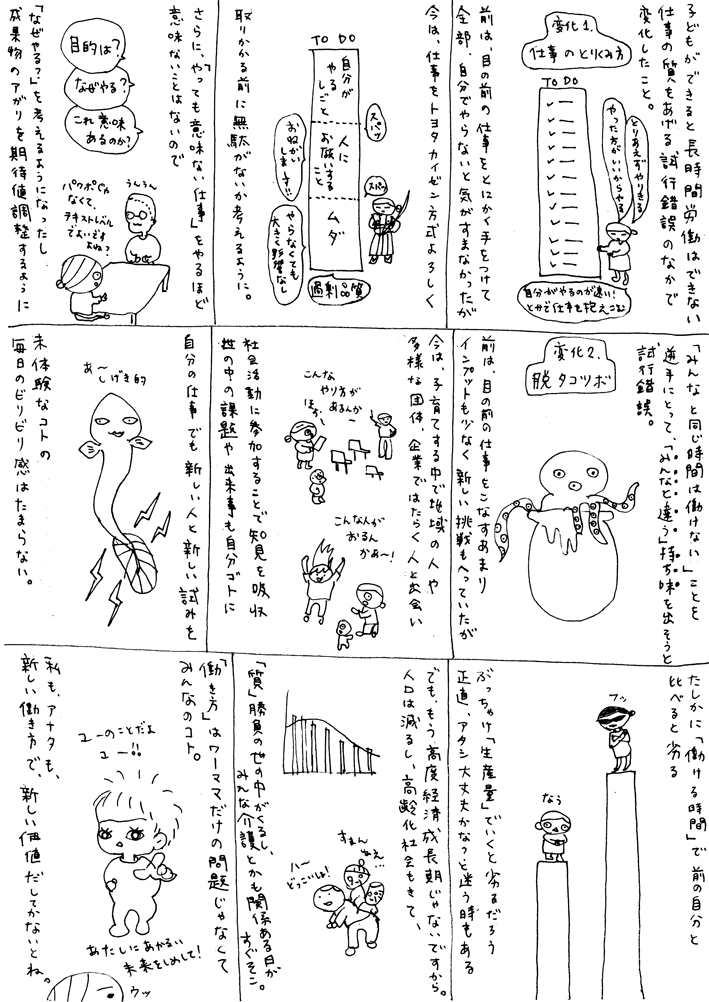 子どもができると長時間労働はできない
仕事の質をあげる、試行錯誤のなかで
変化したこと。
変化1.
仕事のとりくみ方
TO DO
とりあえずやりきる
やった方がいいからやる
自分がやるのが速い！
とかで仕事を抱えこむ
前は、目の前の仕事をとにかく手をつけて
全部、自分でやらないと気がすまなかったが
TO DO
自分が
やる
しごと
人に
お願いする
こと
ムダ
スパッ
スパッ
お願がい
します!!
やらなくても
大きく影響なし
過剰品質
今は、仕事をトヨタカイゼン方式よろしく
取りかかる前に無駄がないか考えるように。
さらに、「やっても意味ない仕事」をやるほど
意味ないことはないので
目的は？
なぜやる？
これ意味
あるのか？
うんうん
パワポじゃ
なくて、
テキストレベル
でよいです
よね？
「なぜやる？」を考えるようになったし
成果物のアガリを期待値調整するように
「みんなと同じ時間は働けない」ことを
逆手にとって、「みんなと違う」持ち味を出そうと
試行錯誤。
変化2.
脱タコツボ
前は、目の前の仕事をこなすあまり
インプットも少なく新しい挑戦もへっていたが
今は、子育てする中で地域の人や
多様な団体、企業ではたらく人と出会い
こんな
やり方が
あるんか
ほぉ〜
こんな人が
おるん
かあ〜！
社会活動に参加することで知見を吸収
世の中の課題や出来事も自分ゴトに
自分の仕事でも新しい人と新しい試みを
あ〜
しげき的
未体験なコトの
毎日のビリビリ感はたまらない。
たしかに「働ける時間」で前の自分と
比べると劣る
フッ
なう
ぶっちゃけ「生産量」でいくと劣るだろう
正直、アタシ大丈夫かな？と迷う時もある
でも、もう高度経済成長期じゃないですから。
人口は減るし、高齢化社会もきて、
すまん
ねぇ…
ハー
どっこいしょ！
「質」勝負の世の中がくるし、
みんな介護とかも関係ある日が
すぐそこ。
「働き方」はワーママだけの問題じゃなくて
みんなのコト。
ユーのことだよ
ユー!!
あたしにあかるい
未来をしめして！
ウッ
私も、アナタも、
新しい働き方で、新しい価値だしてかないとね。